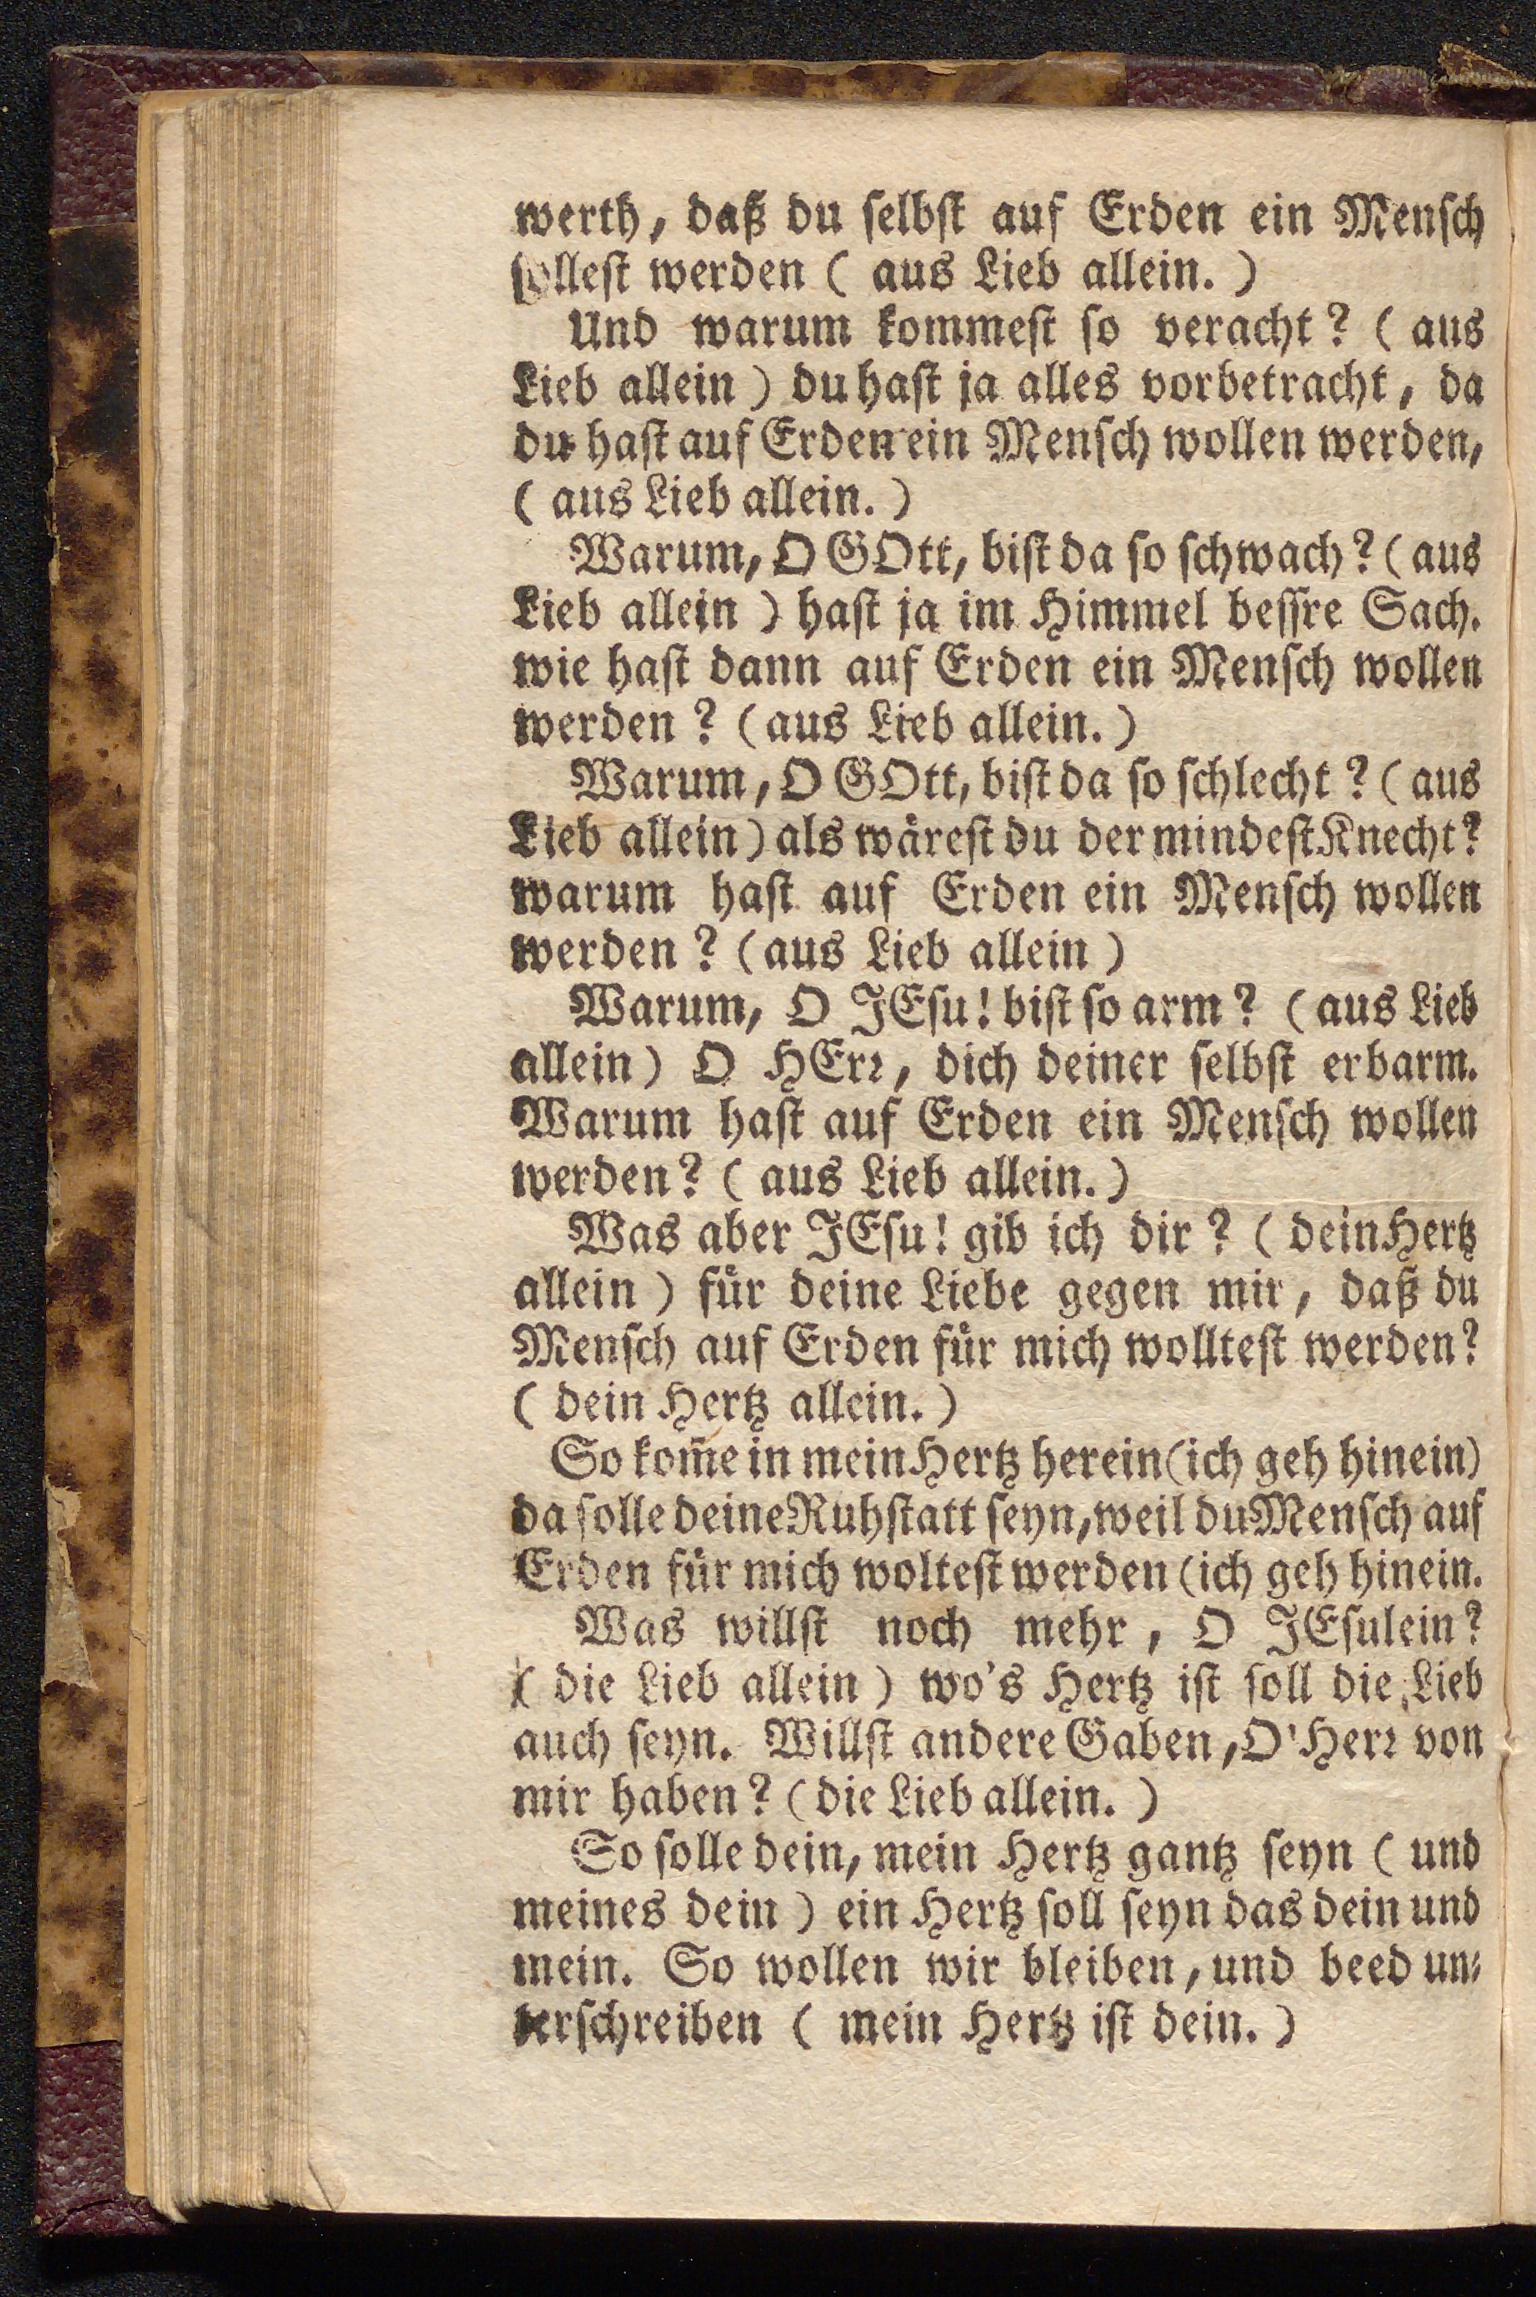 werth, daß du ſelbſt auf Erden ein Menſch
ſolleſt werden ( aus Lieb allein. )
Und warum kommeſt ſo veracht? ( aus
Lieb allein ) du haſt ja alles vorbetracht, da
du haſt auf Erden ein Menſch wollen werden,
( aus Lieb allein. )
Warum, O GOtt, biſt da ſo ſchwach? ( aus
Lieb allein ) haſt ja im Himmel beſſre Sach.
wie haſt dann auf Erden ein Menſch wollen
werden? (aus Lieb allein.)
Warum, O GOtt, biſt da ſo ſchlecht? ( aus
Lieb allein) als wäreſt du der mindeſt Knecht?
warum haſt auf Erden ein Menſch wollen
werden? (aus Lieb allein )
Warum, O JEſu! biſt ſo arm? ( aus Lieb
allein) O HErꝛ, dich deiner ſelbſt erbarm.
Warum haſt auf Erden ein Menſch wollen
werden? ( aus Lieb allein.)
Was aber JEſu! gib ich dir? ( dein Hertz
allein ) für deine Liebe gegen mir, daß du
Menſch auf Erden für mich wollteſt werden?
( dein Hertz allein. )
So kom̃e in mein Hertz herein (ich geh hinein)
da ſolle deine Ruhſtatt ſeyn, weil du Menſch auf
Erden für mich wolteſt werden (ich geh hinein.
Was willſt noch mehr, O JEſulein?
( die Lieb allein ) wo's Hertz iſt ſoll die Lieb
auch ſeyn. Willſt andere Gaben, O' Herꝛ von
mir haben? ( die Lieb allein. )
So ſolle dein, mein Hertz gantz ſeyn ( und
meines dein ) ein Hertz ſoll ſeyn das dein und
mein. So wollen wir bleiben, und beed un⸗
derſchreiben ( mein Hertz iſt dein. )